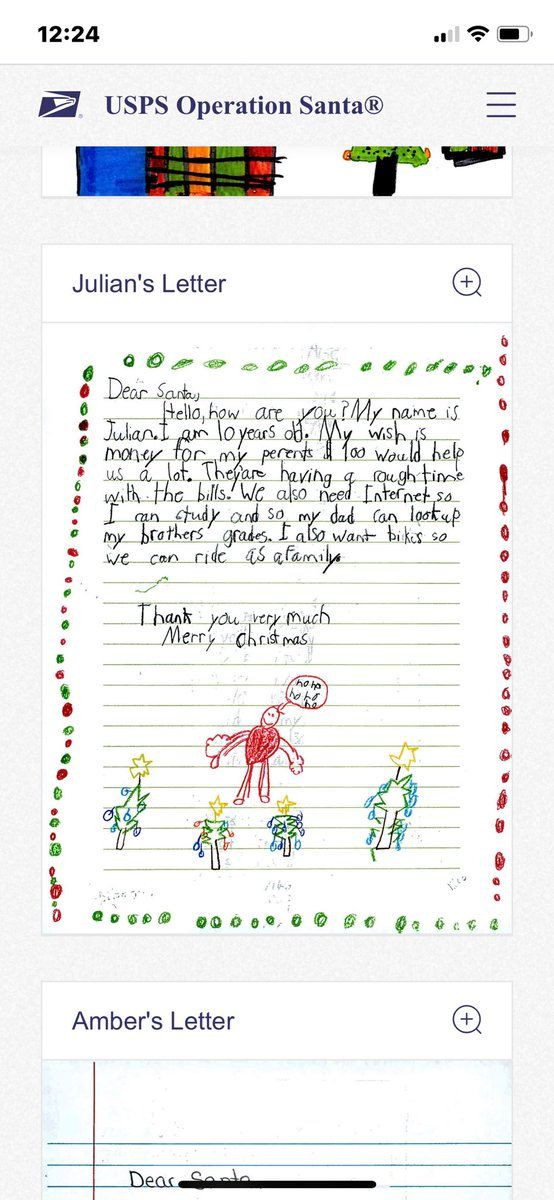 12:24
USPS Operation Santa®
Julian's Letter
Dear Santa,
Hello, how are you? My name is
Julian. I am 10 years old. My wish is
money for my perents $ 100 would help
us a lot. They are having a rough time
with the bills. We also need Internet so
I can study and so my dad can look up
my brothers grades. I also want bikes so
we can ride as a family.
Thank you very much
Merry Christmas
ho ho
ho ho
ho
Amber's Letter
Dear Santa